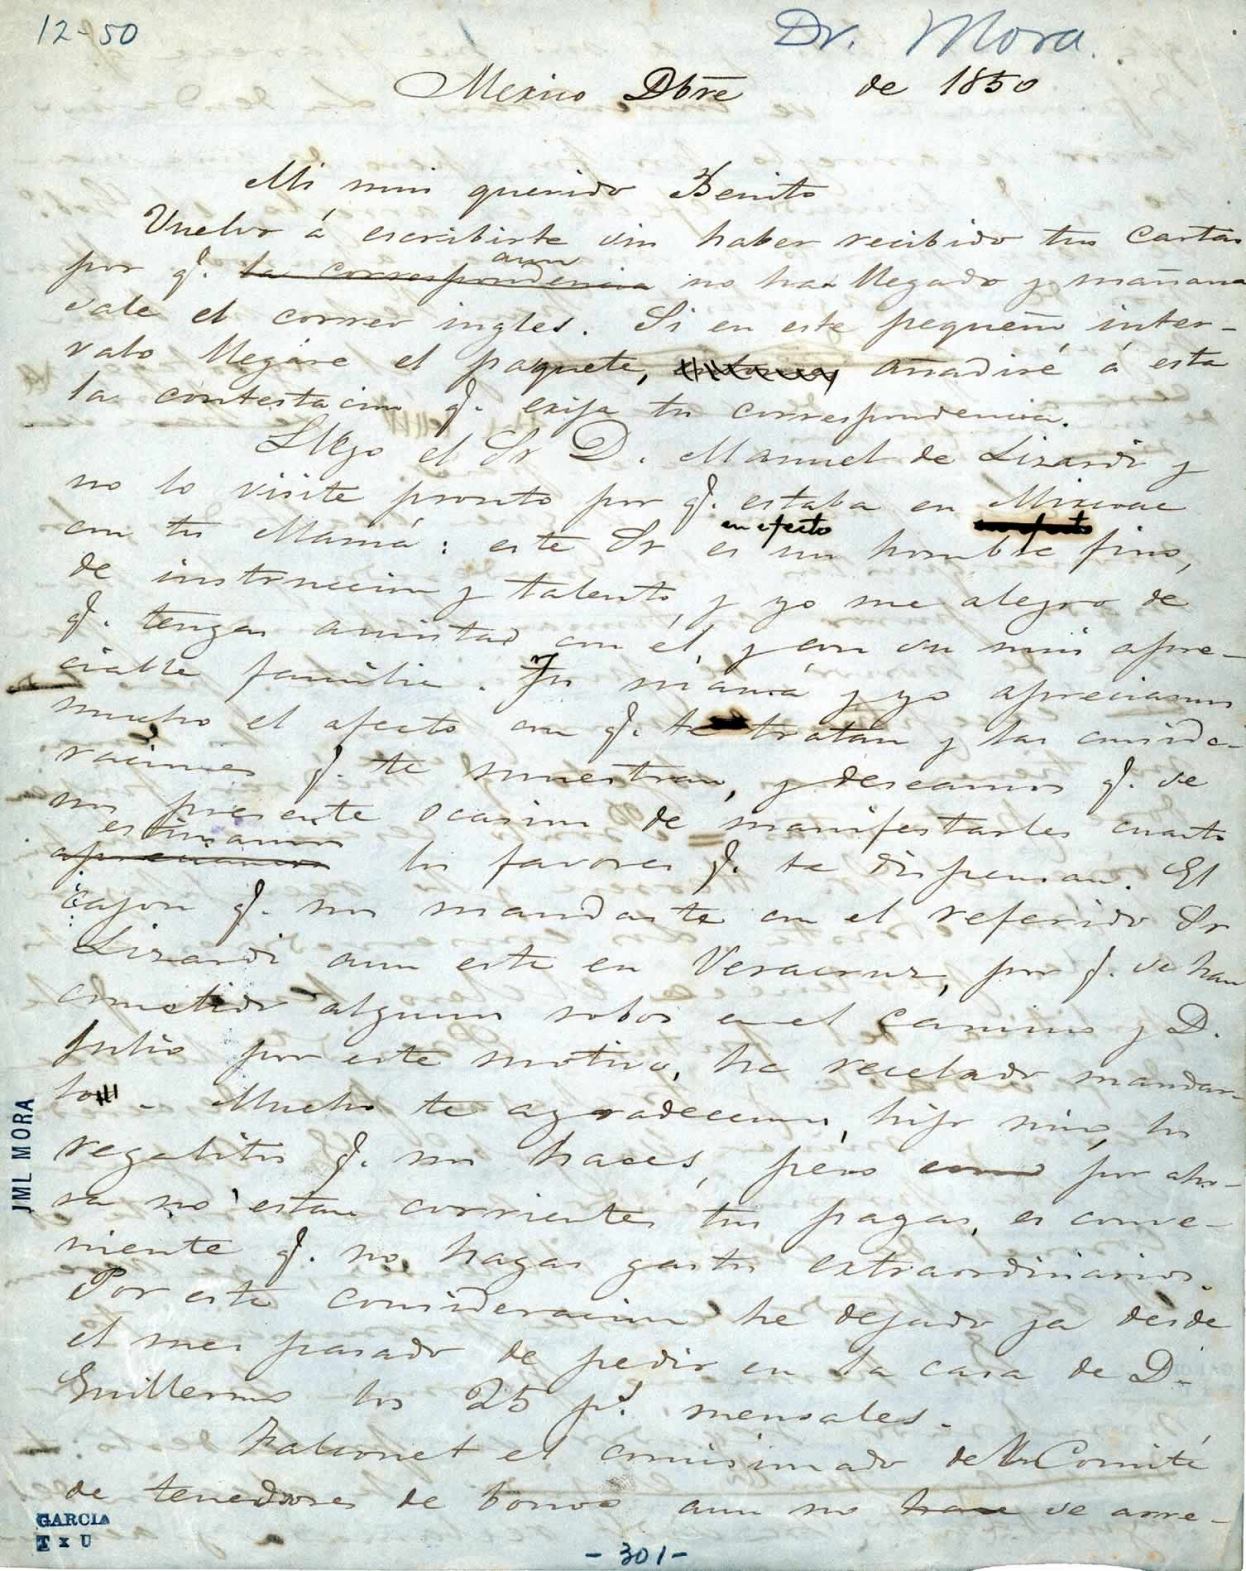 12-50
Dr. Mora.
Mexico Dbre de 1850
Mi mui querido Benito
Vuelvo á escribirte sin haber recibido tus cartas
por q.e la correspondencia aun no ha llegado y mañana
sale el correo ingles. Si en este pequeño inter-
valo llegáre el paquete, añadiré á esta
la contestacion q.e exija tu correspondencia.
Llegó el Sr D. Manuel de Lizardi y
no lo visite pronto por q.e estaba en Mixcoac
con tu Mamá: este Sr es en efecto un hombre fino,
de instruccion y talento, y yo me alegro de
q.e tengas amistad con él, y con su mui apre-
ciable familia. Tu mamá y yo apreciamos
mucho el afecto con q.e te tratan y las conside-
raciones q.e te muestran, y deseamos q.e se
nos presente ocasion de manifestarles cuanto
estimamos
apreciamos los favores q.e te dispensan. El
cajon q.e nos mandaste con el referido Sr
Lizardi aun esta en Veracruz, por q.e se han
cometido algunos robos en el camino y D.
Julio por este motivo, ha recelado mandar-
lo. Mucho te agradecemos, hijo mio, los
regalitos q.e nos haces, pero como por aho-
ra no estan corrientes tus pagas, es conve-
niente q.e no hagas gastos extraordinarios.
Por esta consideracion he dejado ya desde
el mes pasado de pedir en la casa de D.
Guillermo los 25 p.s mensales.
Falconet el comisionado del Comité
de tenedores de bonos aun no se arre-
JML MORA
GARCIA
T x U
-301-